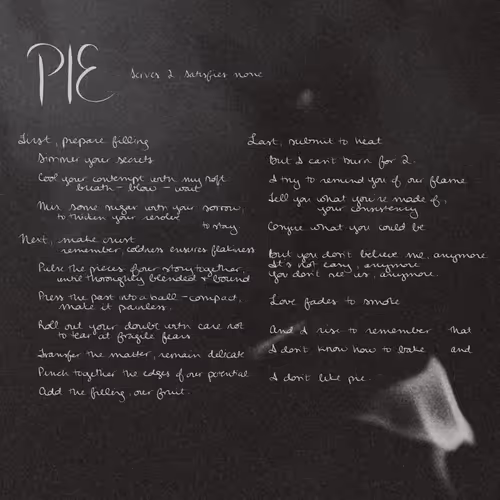 PIE
Serves 2, satisfies none
First, prepare filling
Simmer your secrets
Cool your contempt with my soft
breath - blow - wait
Mix some sugar with your sorrow,
to thicken your resolve
to stay.
Next, make crust
remember, coldness ensures flakiness
Pulse the pieces of our story together,
until thoroughly blended & bound
Press the past into a ball - compact,
make it painless.
Roll out your doubt with care not
to tear at fragile fears
Transfer the matter, remain delicate
Pinch together the edges of our potential
Add the filling, our fruit.
Last, submit to heat
But I can't burn for 2.
I try to remind you of our flame
Tell you what you're made of,
your consistency
Conjure what you could be
But you don't believe me, anymore
It's not easy, anymore
You don't see us, anymore.
Love fades to smoke
And I rise to remember that
I don't know how to bake and
I don't like pie.